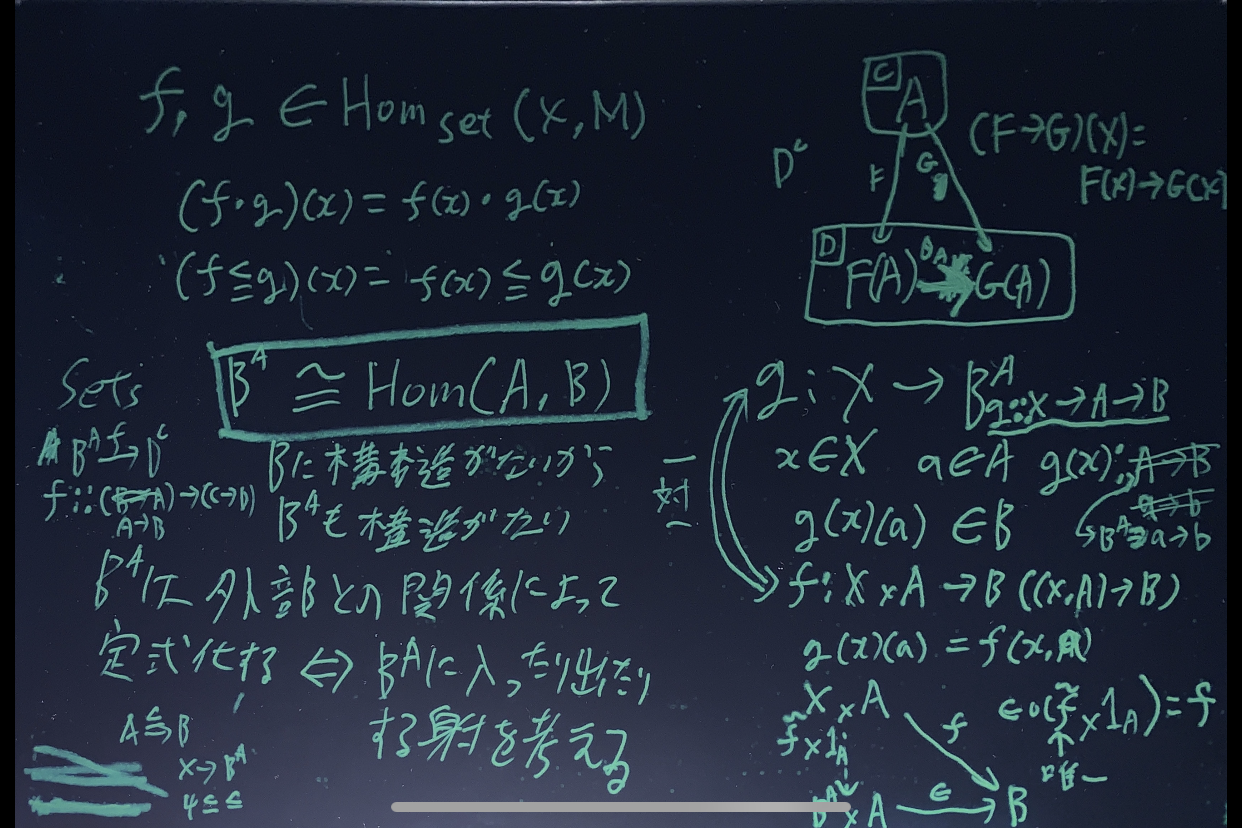 f, g ∈ Hom set (X, M)
(f・g)(x) = f(x)・g(x)
(f≦g)(x) = f(x) ≦ g(x)
Sets
B^A ≅ Hom(A, B)
B^A f→ D^C
f::(B→A)→(C→D)
A→B
Bに構造がないから
B^Aも構造がない
B^Aは外部との関係によって
定式化する ⇔ B^Aに入ったり出たり
する射を考える
A≦B
X→B^A
C
A
D^C
F
G
(F→G)(X)=
F(X)→G(X)
D
F(A) → G(A)
g: X → B^A
g::X→A→B
x∈X a∈A g(x): A→B
a→b
g(x)(a) ∈B
B^A∋a→b
一対一
f: X×A →B ((X,A)→B)
g(x)(a) = f(x,a)
X×A
f
ϵo(f̃×1_A)=f
f̃×1_A
↑
唯一
B^A×A ϵ→ B